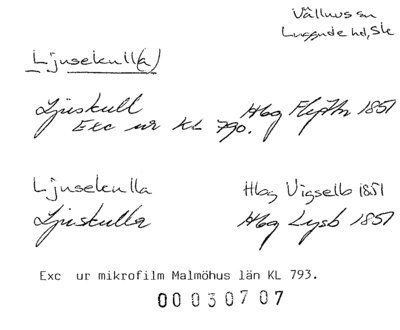 Vållhus sn
Luggude hd, Sk
Ljusekull(a)
Ljuskull Hbg Flyttn 1851
Exc ur KL 790.
Ljusekulla Hbg Vigselb 1851
Ljuskulla Hbg Lysb 1851
Exc ur mikrofilm Malmöhus län KL 793.
00030707